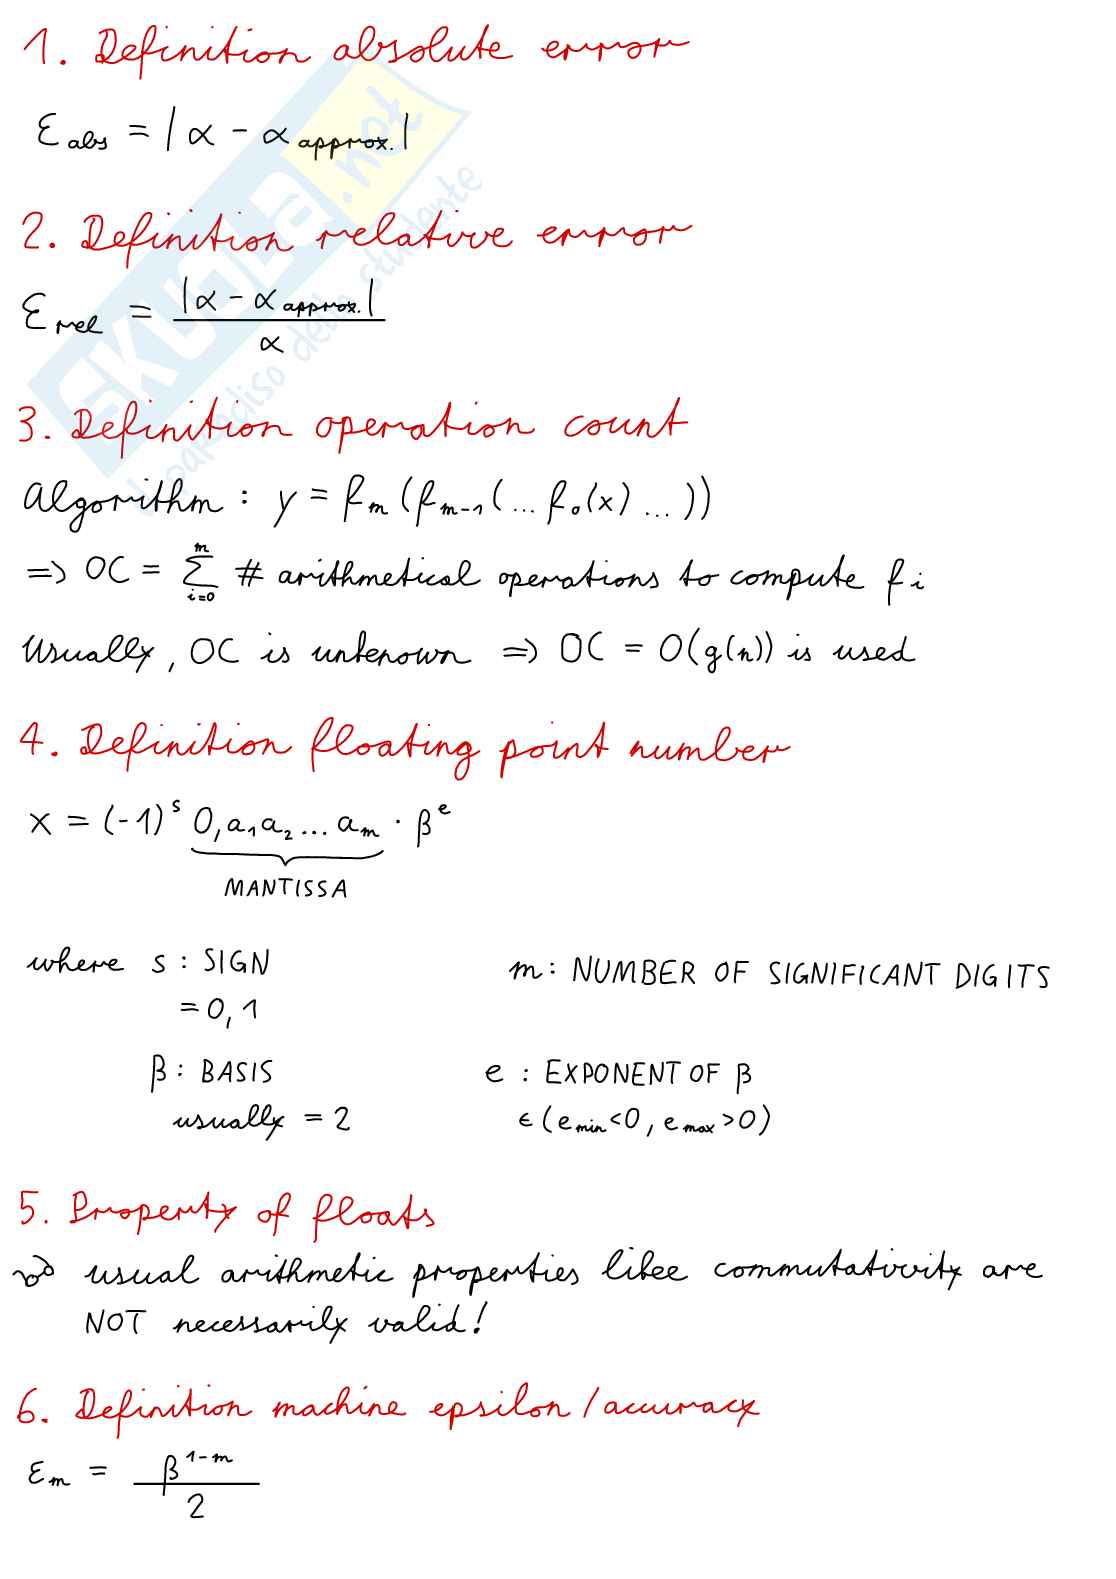 1. Definition absolute error
ε_abs = |α - α_approx.|
2. Definition relative error
ε_rel = |α - α_approx.| / α
3. Definition operation count
Algorithm : y = f_m (f_m-1 (... f_0(x) ... ))
=> OC = Σ_{i=0}^{m} # arithmetical operations to compute f_i
Usually, OC is unknown => OC = O(g(n)) is used
4. Definition floating point number
x = (-1)^s 0,a_1 a_2 ... a_m · β^e
MANTISSA
where s : SIGN
= 0, 1
m : NUMBER OF SIGNIFICANT DIGITS
β : BASIS
usually = 2
e : EXPONENT OF β
∈ (e_min < 0, e_max > 0)
5. Property of floats
usual arithmetic properties like commutativity are
NOT necessarily valid!
6. Definition machine epsilon / accuracy
ε_m = β^{1-m} / 2
SKUOLA.not
il paradiso dello studente